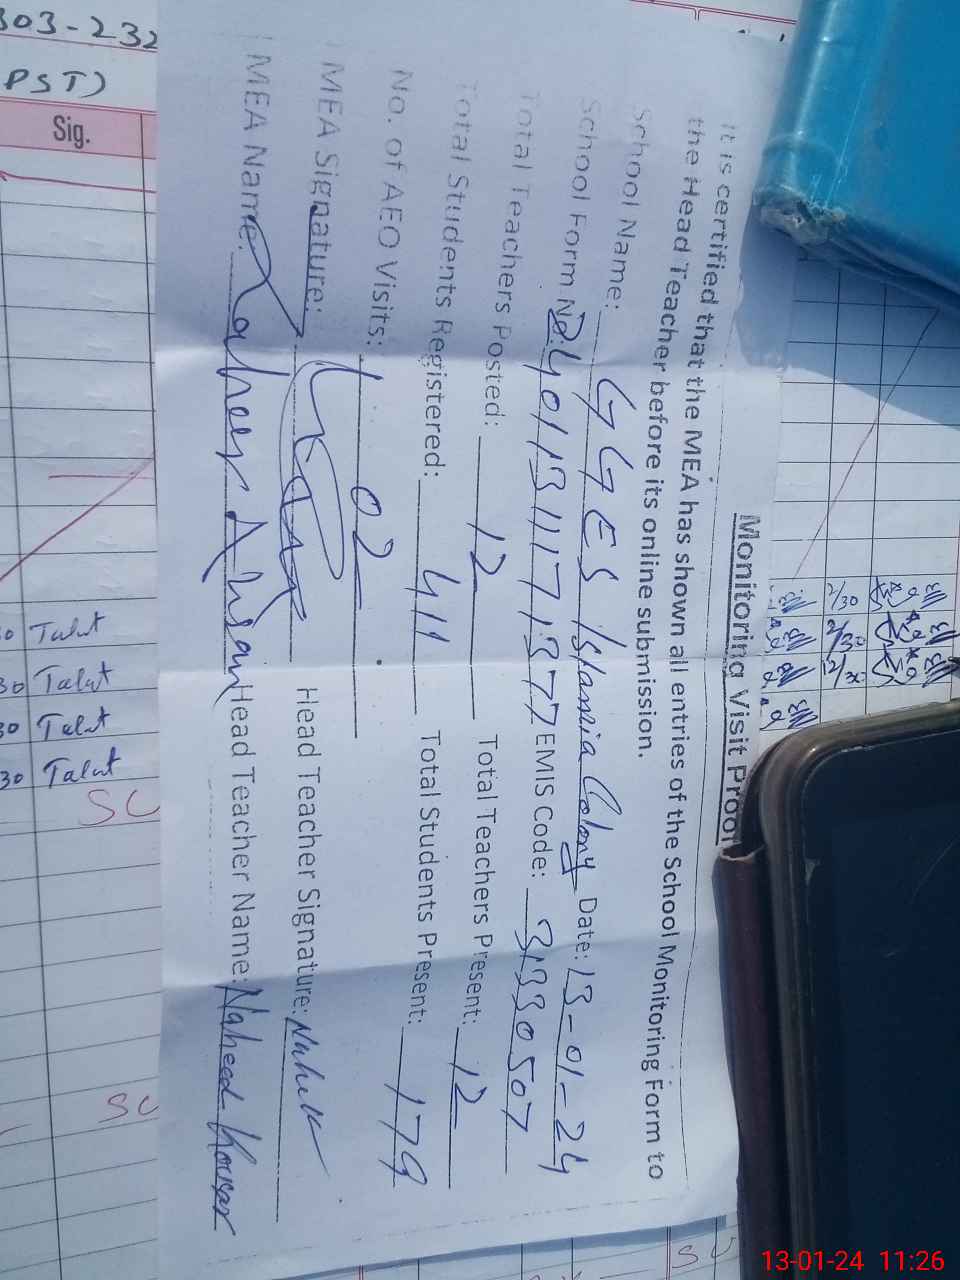 Monitoring Visit Proof
It is certified that the MEA has shown all entries of the School Monitoring Form to
the Head Teacher before its online submission.
School Name: GGES Islamia Colony Date: 13-01-24
School Form No. EMIS Code: 31330507
Total Teachers Posted: 12 Total Teachers Present: 12
Total Students Registered: 411 Total Students Present: 179
No. of AEO Visits: 02
MEA Signature: Head Teacher Signature:
MEA Name: Zaheer Ahsan Head Teacher Name: Naheed Kousar
303-232
PST)
Sig.
30 Talat
30 Talat
30 Talat
30 Talat
SU
SU
SU
13-01-24 11:26